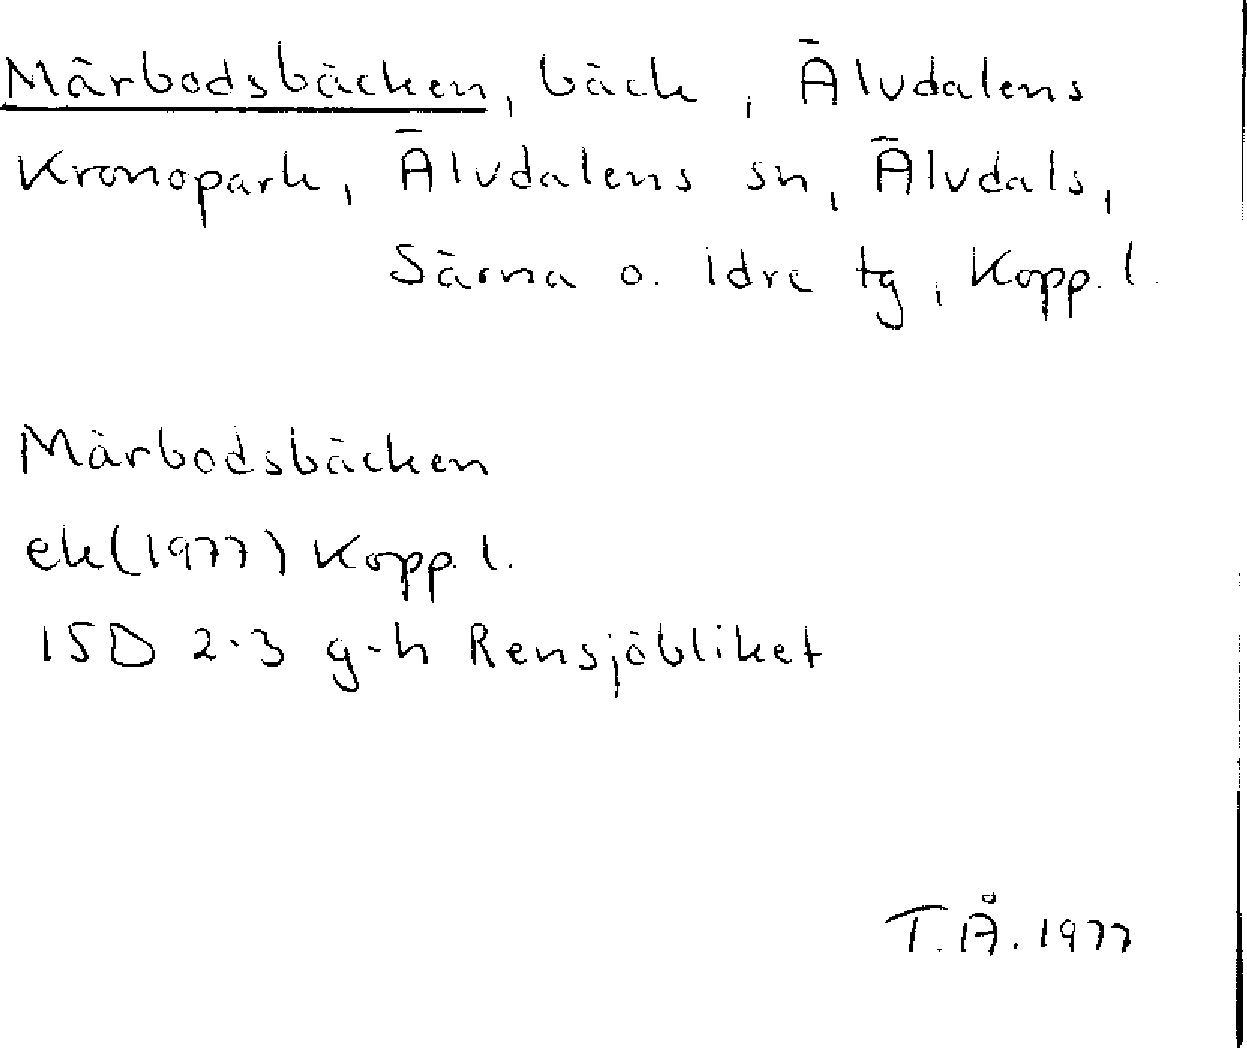 Mārbodsbācken, bāck, Ālvdalens
Kronopark, Ālvdalens sn, Ālvdals,
Särna o. Idre tg, Kopp. l.
Märbodsbācken
ek(1977) Kopp. l.
15D 2-3 g-h Rensjöbliket
T.Å. 1977